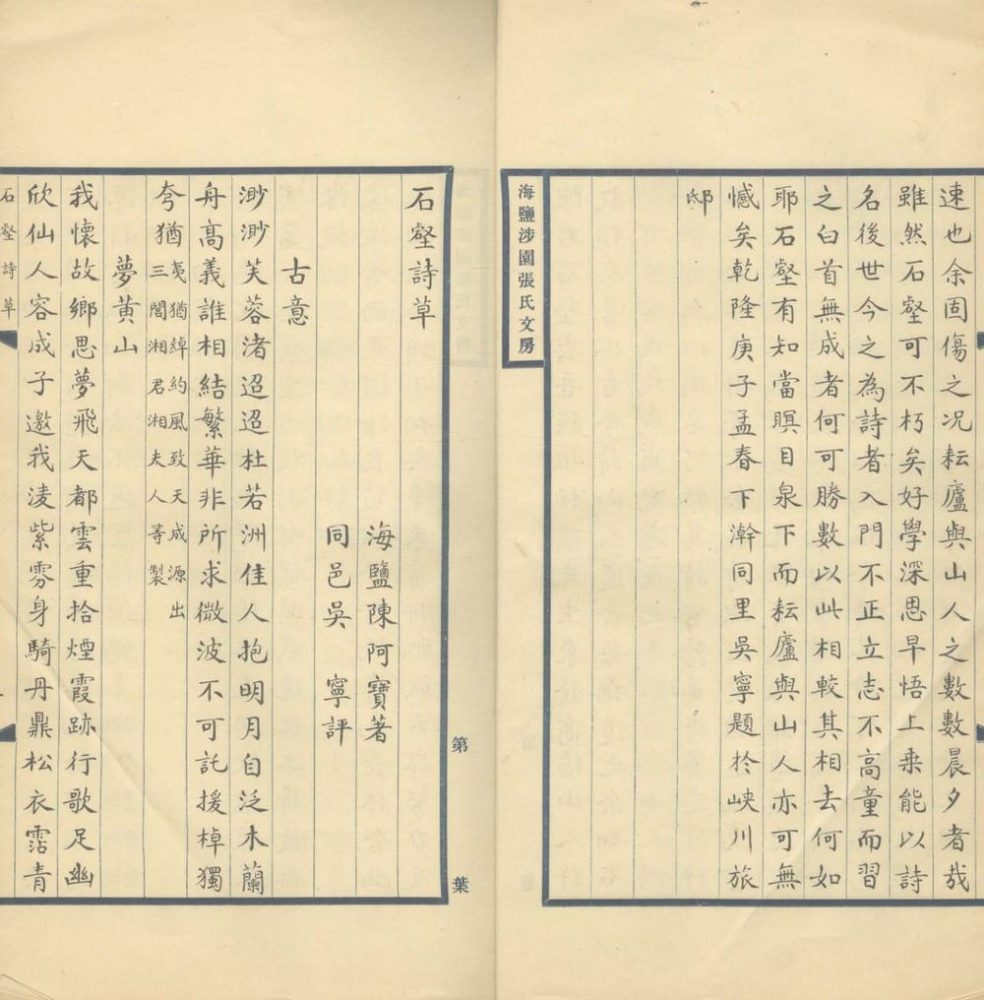 速也余固傷之况耘廬與山人之數數晨夕者哉
雖然石壑可不朽矣好學深思早悟上乗能以詩
名後世今之為詩者入門不正立志不高童而習
之白首無成者何可勝數以此相較其相去何如
耶石壑有知當瞑目泉下而耘廬與山人亦可無
憾矣乾隆庚子孟春下澣同里吳寧題於峽川旅
邸
海鹽涉園張氏文房
第 葉
石壑詩草
海鹽陳阿寶著
同邑吳 寧評
古意
渺渺芙蓉渚迢迢杜若洲佳人抱明月自泛木蘭
舟高義誰相結繁華非所求微波不可託援棹獨
夸猶
夷猶綽約風致天成源出
三閭湘君湘夫人等製
夢黄山
我懷故鄉思夢飛天都雲重拾煙霞跡行歌足幽
欣仙人容成子邀我淩紫雰身騎丹鼎松衣霑青
石壑詩草